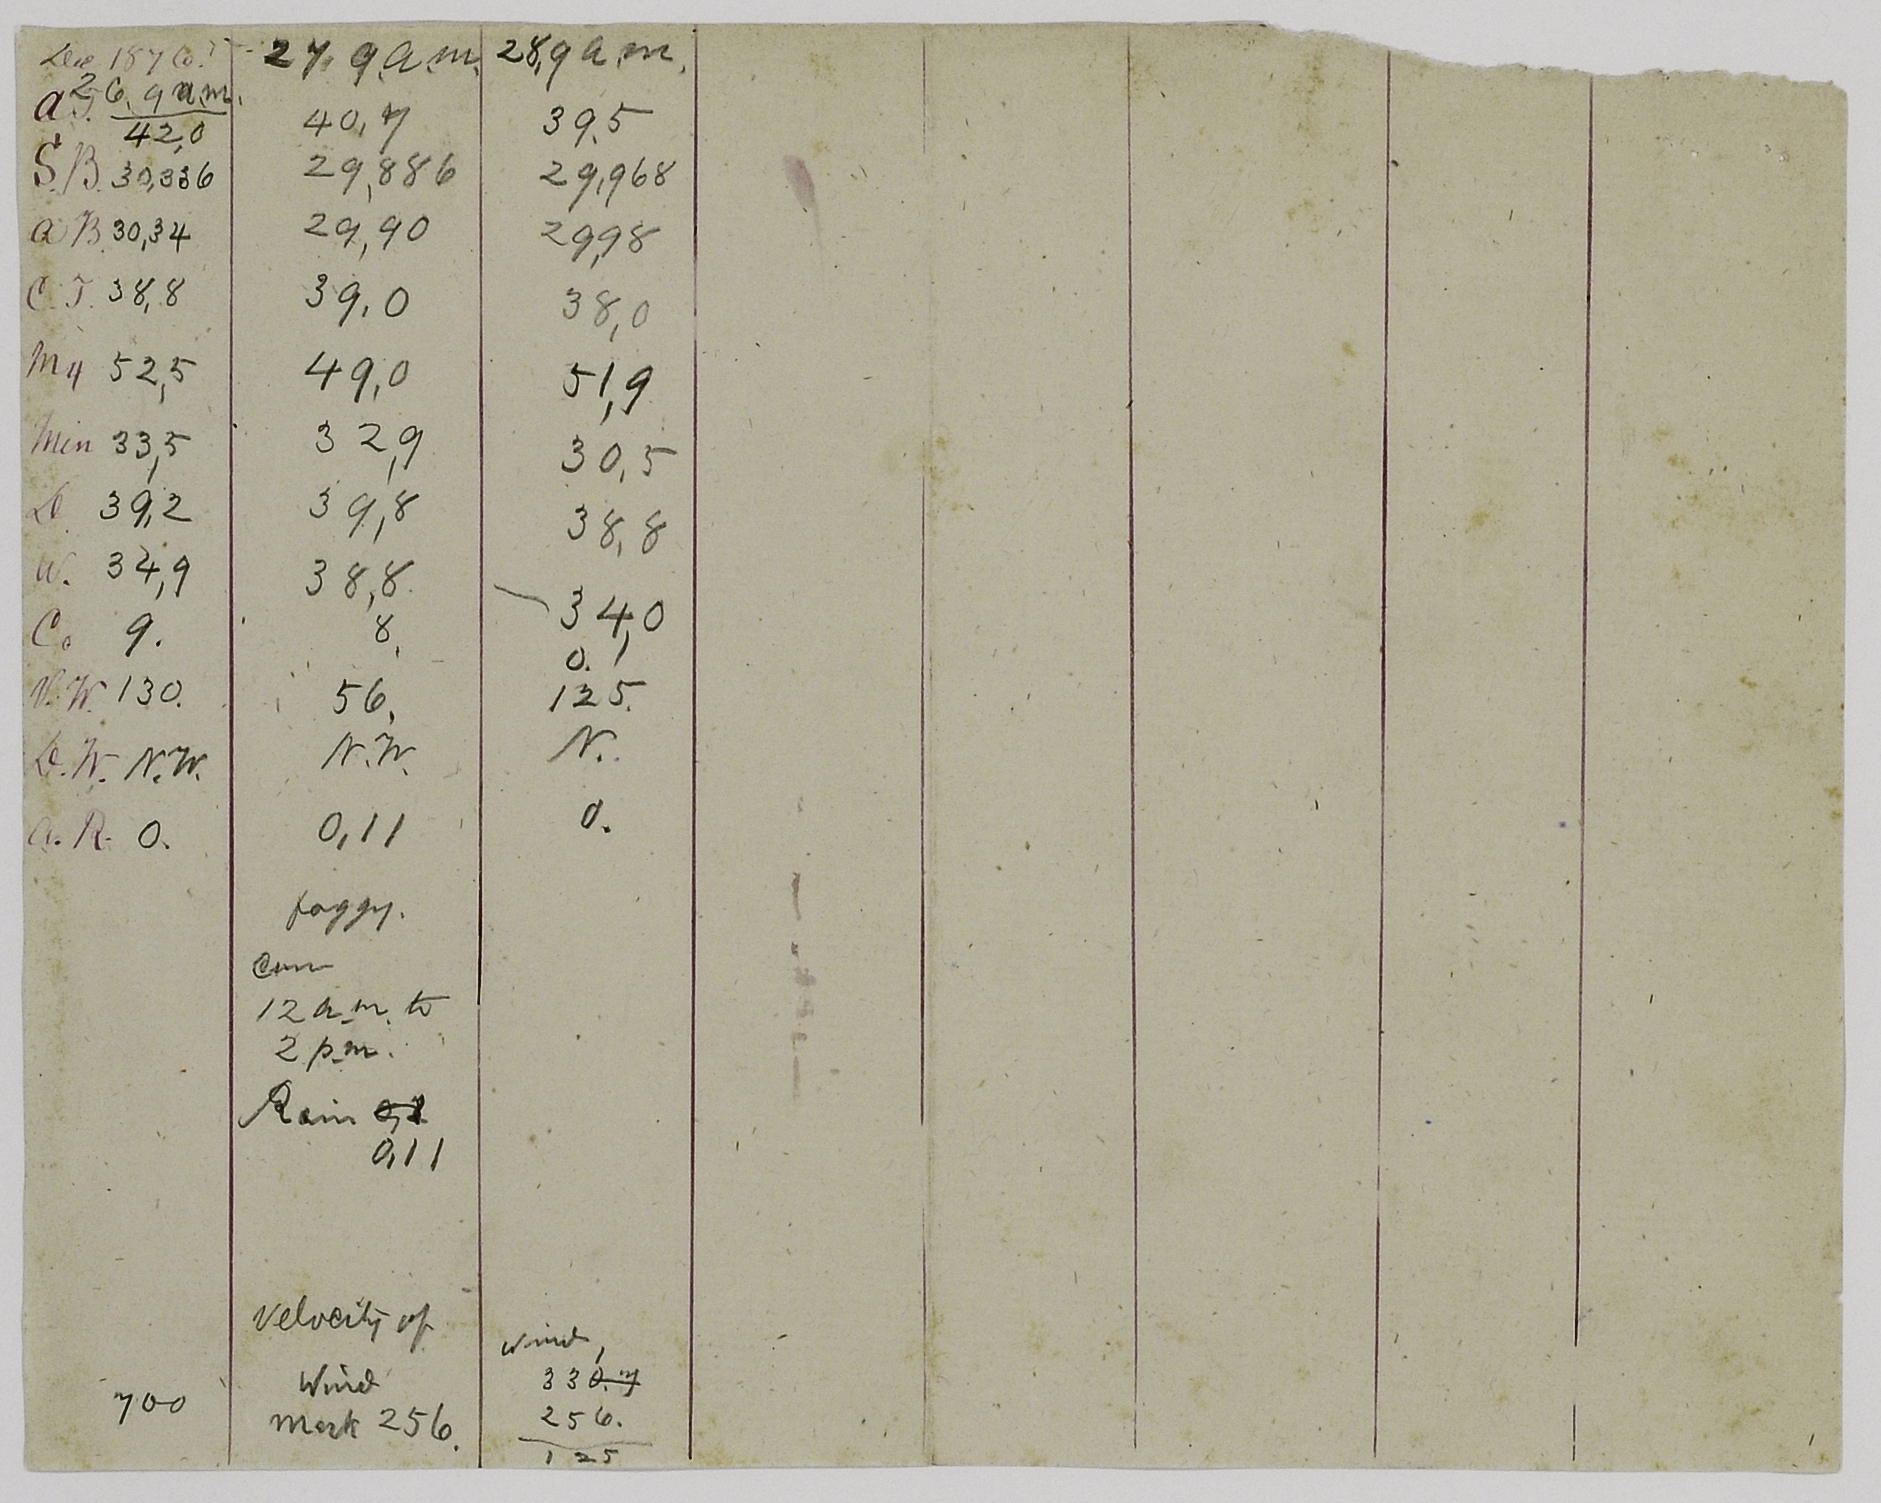 Dec 1876. 27. 9 a.m. 28, 9 a.m.
26. 9 a.m.
a T. 42,0 40,7 39.5
S.B. 30,336 29,886 29,968
a B. 30,34 29,90 29,98
C. T. 38,8 39,0 38,0
Mx 52,5 49,0 51,9
Min 33,5 32,9 30,5
D. 39,2 39,8 38,8
W. 34,9 38,8. 34,0
C. 9. 8. 0.
V.W. 130. 56. 125.
D.W. N.W. N.W. N.
a. R. 0. 0,11 0.
foggy.
com
12 a.m. to
2 p.m.
Rain
0,11
Velocity of wind,
Wind 330.7
700 Mark 256. 256.
125